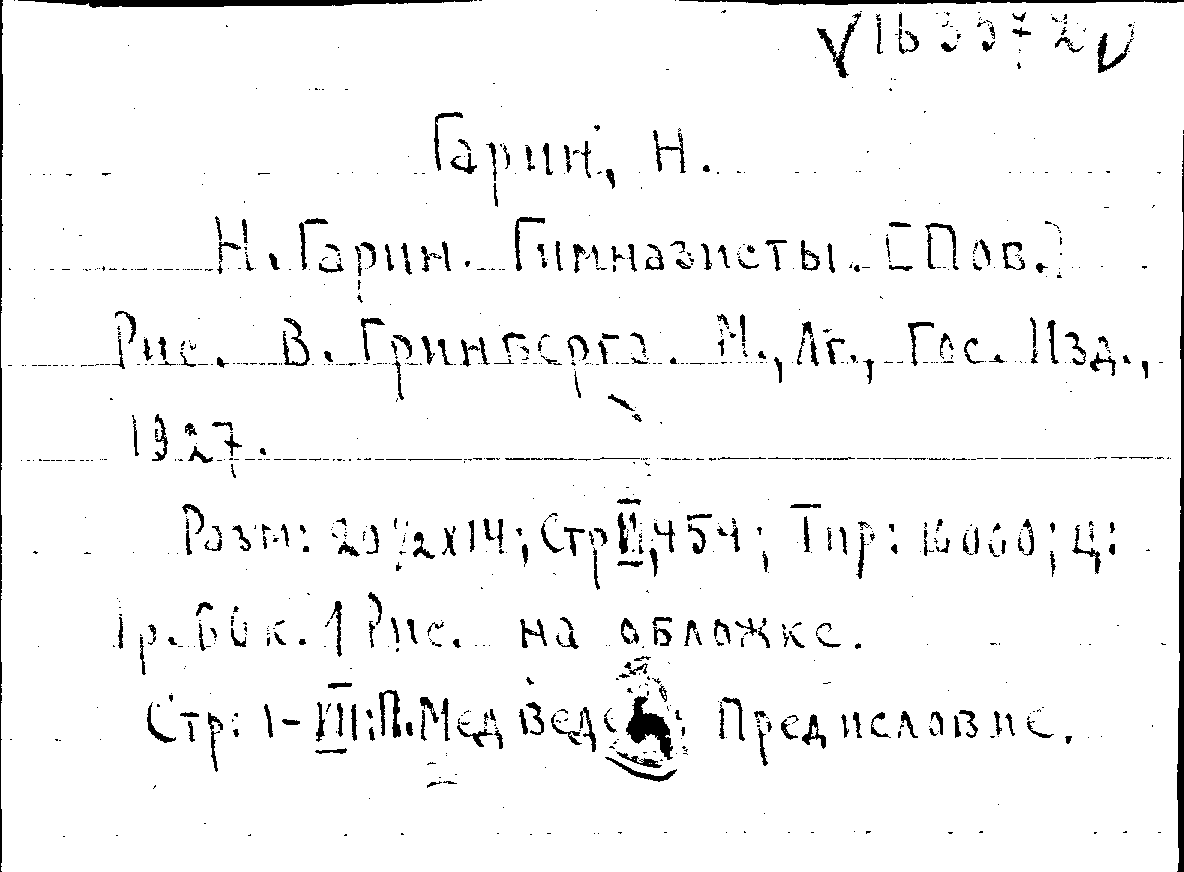 163572
Гарин, Н.
Н. Гарин. Гимназисты. [Пов.]
Рис. В. Гринберга. М., Лг., Гос. Изд.,
1927.
Разм: 20 1/2 x 14; Стр 454; Тир: 10000; Ц:
1 р. 60 к. 1 Рис. на обложке.
Стр: 1-VIII: П. Предисловие.